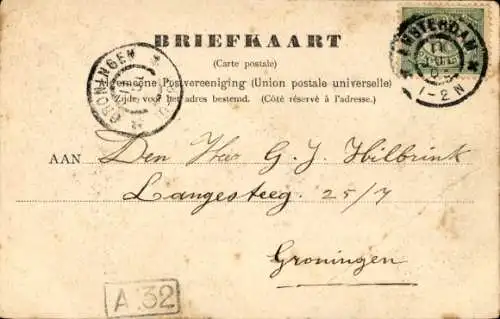 BRIEFKAART
(Carte postale)
Algemeene Postvereeniging (Union postale universelle)
Zijde voor het adres bestemd. (Côté réservé à l'adresse.)
GRONINGEN
AMSTERDAM
1-2 N
AAN Den Heer G. J. Hilbrink
Langesteeg. 25/7
Groningen
A.32